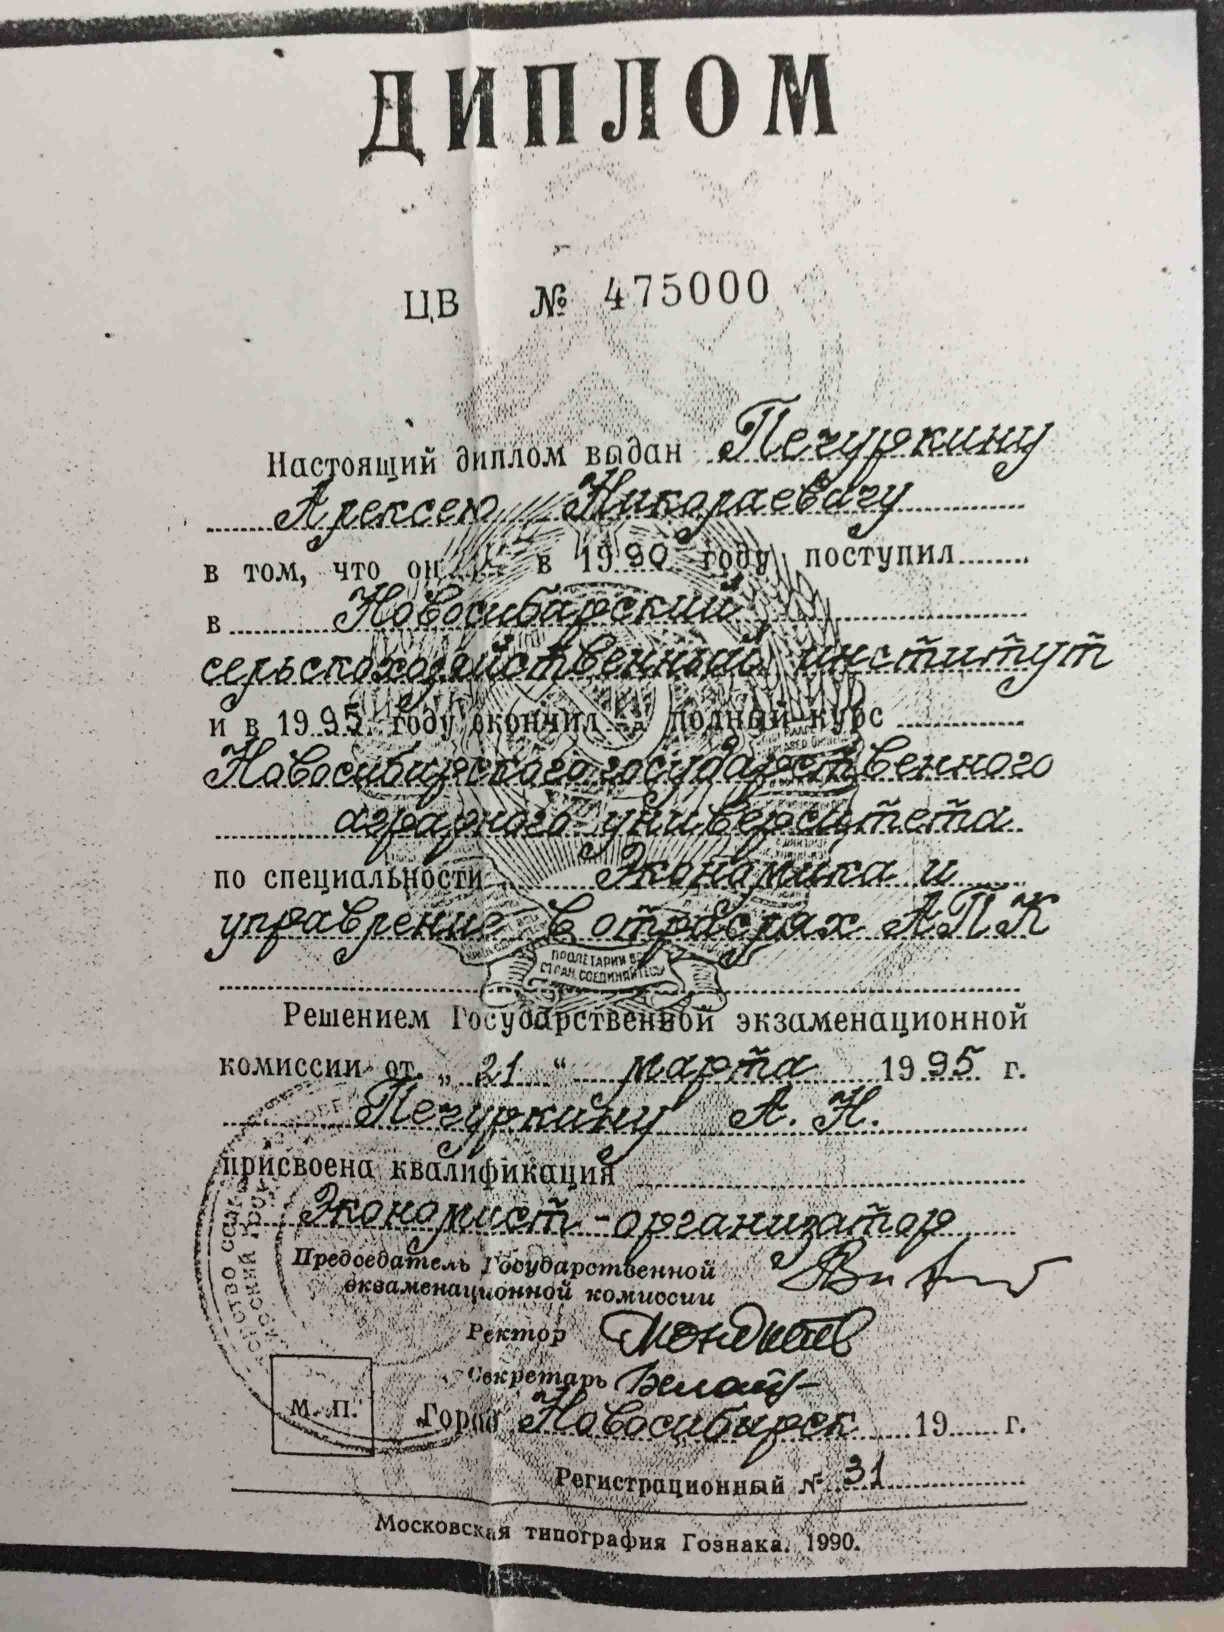 ДИПЛОМ
ЦВ № 475000
Настоящий диплом выдан Печуркину
Алексею Николаевичу
в том, что он в 1990 году поступил
в Новосибирский
сельскохозяйственный институт
и в 1995 году окончил полный курс
Новосибирского государственного
аграрного университета
по специальности Экономика и
управление в отраслях АПК
ПРОЛЕТАРИИ ВСЕХ
СТРАН, СОЕДИНЯЙТЕСЬ
Решением Государственной экзаменационной
комиссии от „21“ марта 1995 г.
Печуркину А. Н.
присвоена квалификация
Экономист-организатор
Председатель Государственной
экзаменационной комиссии
Ректор
Секретарь
М. П.
Город Новосибирск 19 г.
Регистрационный № 31
Московская типография Гознака. 1990.